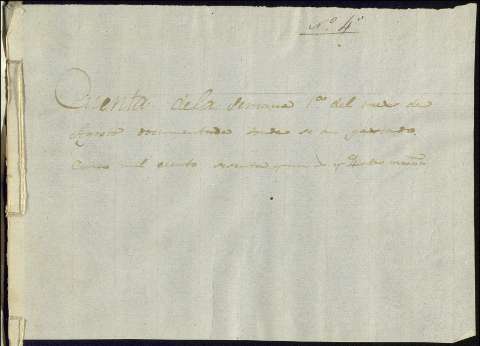 N.º 4.º
Cuenta de la Semana 1.ª del mes de
Agosto documentada donde se an gastado
Cinco mil ciento sesenta y